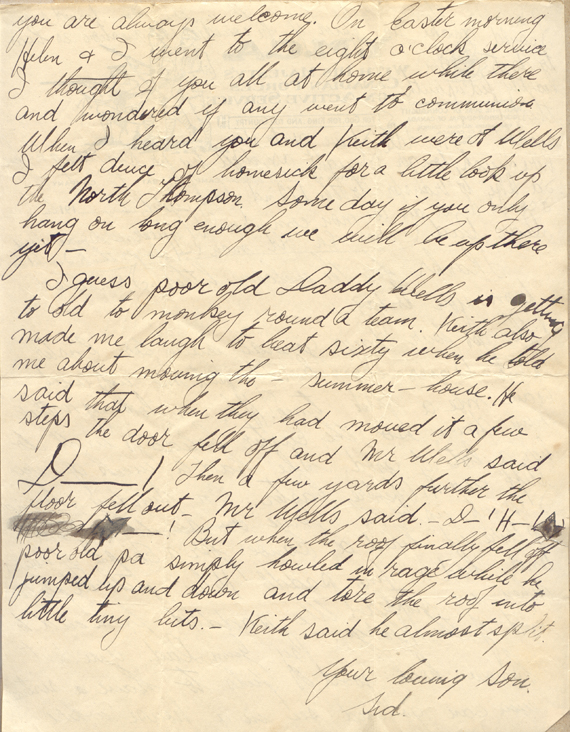 you are always welcome. On Easter morning
Helen & I went to the eight o'clock service
I thought of you all at home while there
and wondered if any went to communion
When I heard you and Keith were at Wells
I felt deuced homesick for a little look up
the North Thompson. Some day if you only
hang on long enough we will be up there
yet —
I guess poor old Daddy Wells is getting
to old to monkey round a team. Keith also
made me laugh to beat sixty when he told
me about moving the – summer – house. He
said that when they had moved it a few
steps the door fell off and Mr Wells said
D——! Then a few yards further the
floor fell out – Mr Wells said – D–! H–
—! But when the roof finally fell off
poor old pa simply howled in rage while he
jumped up and down and tore the roof into
little tiny bits. – Keith said he almost split.
Your loving Son.
Sid.